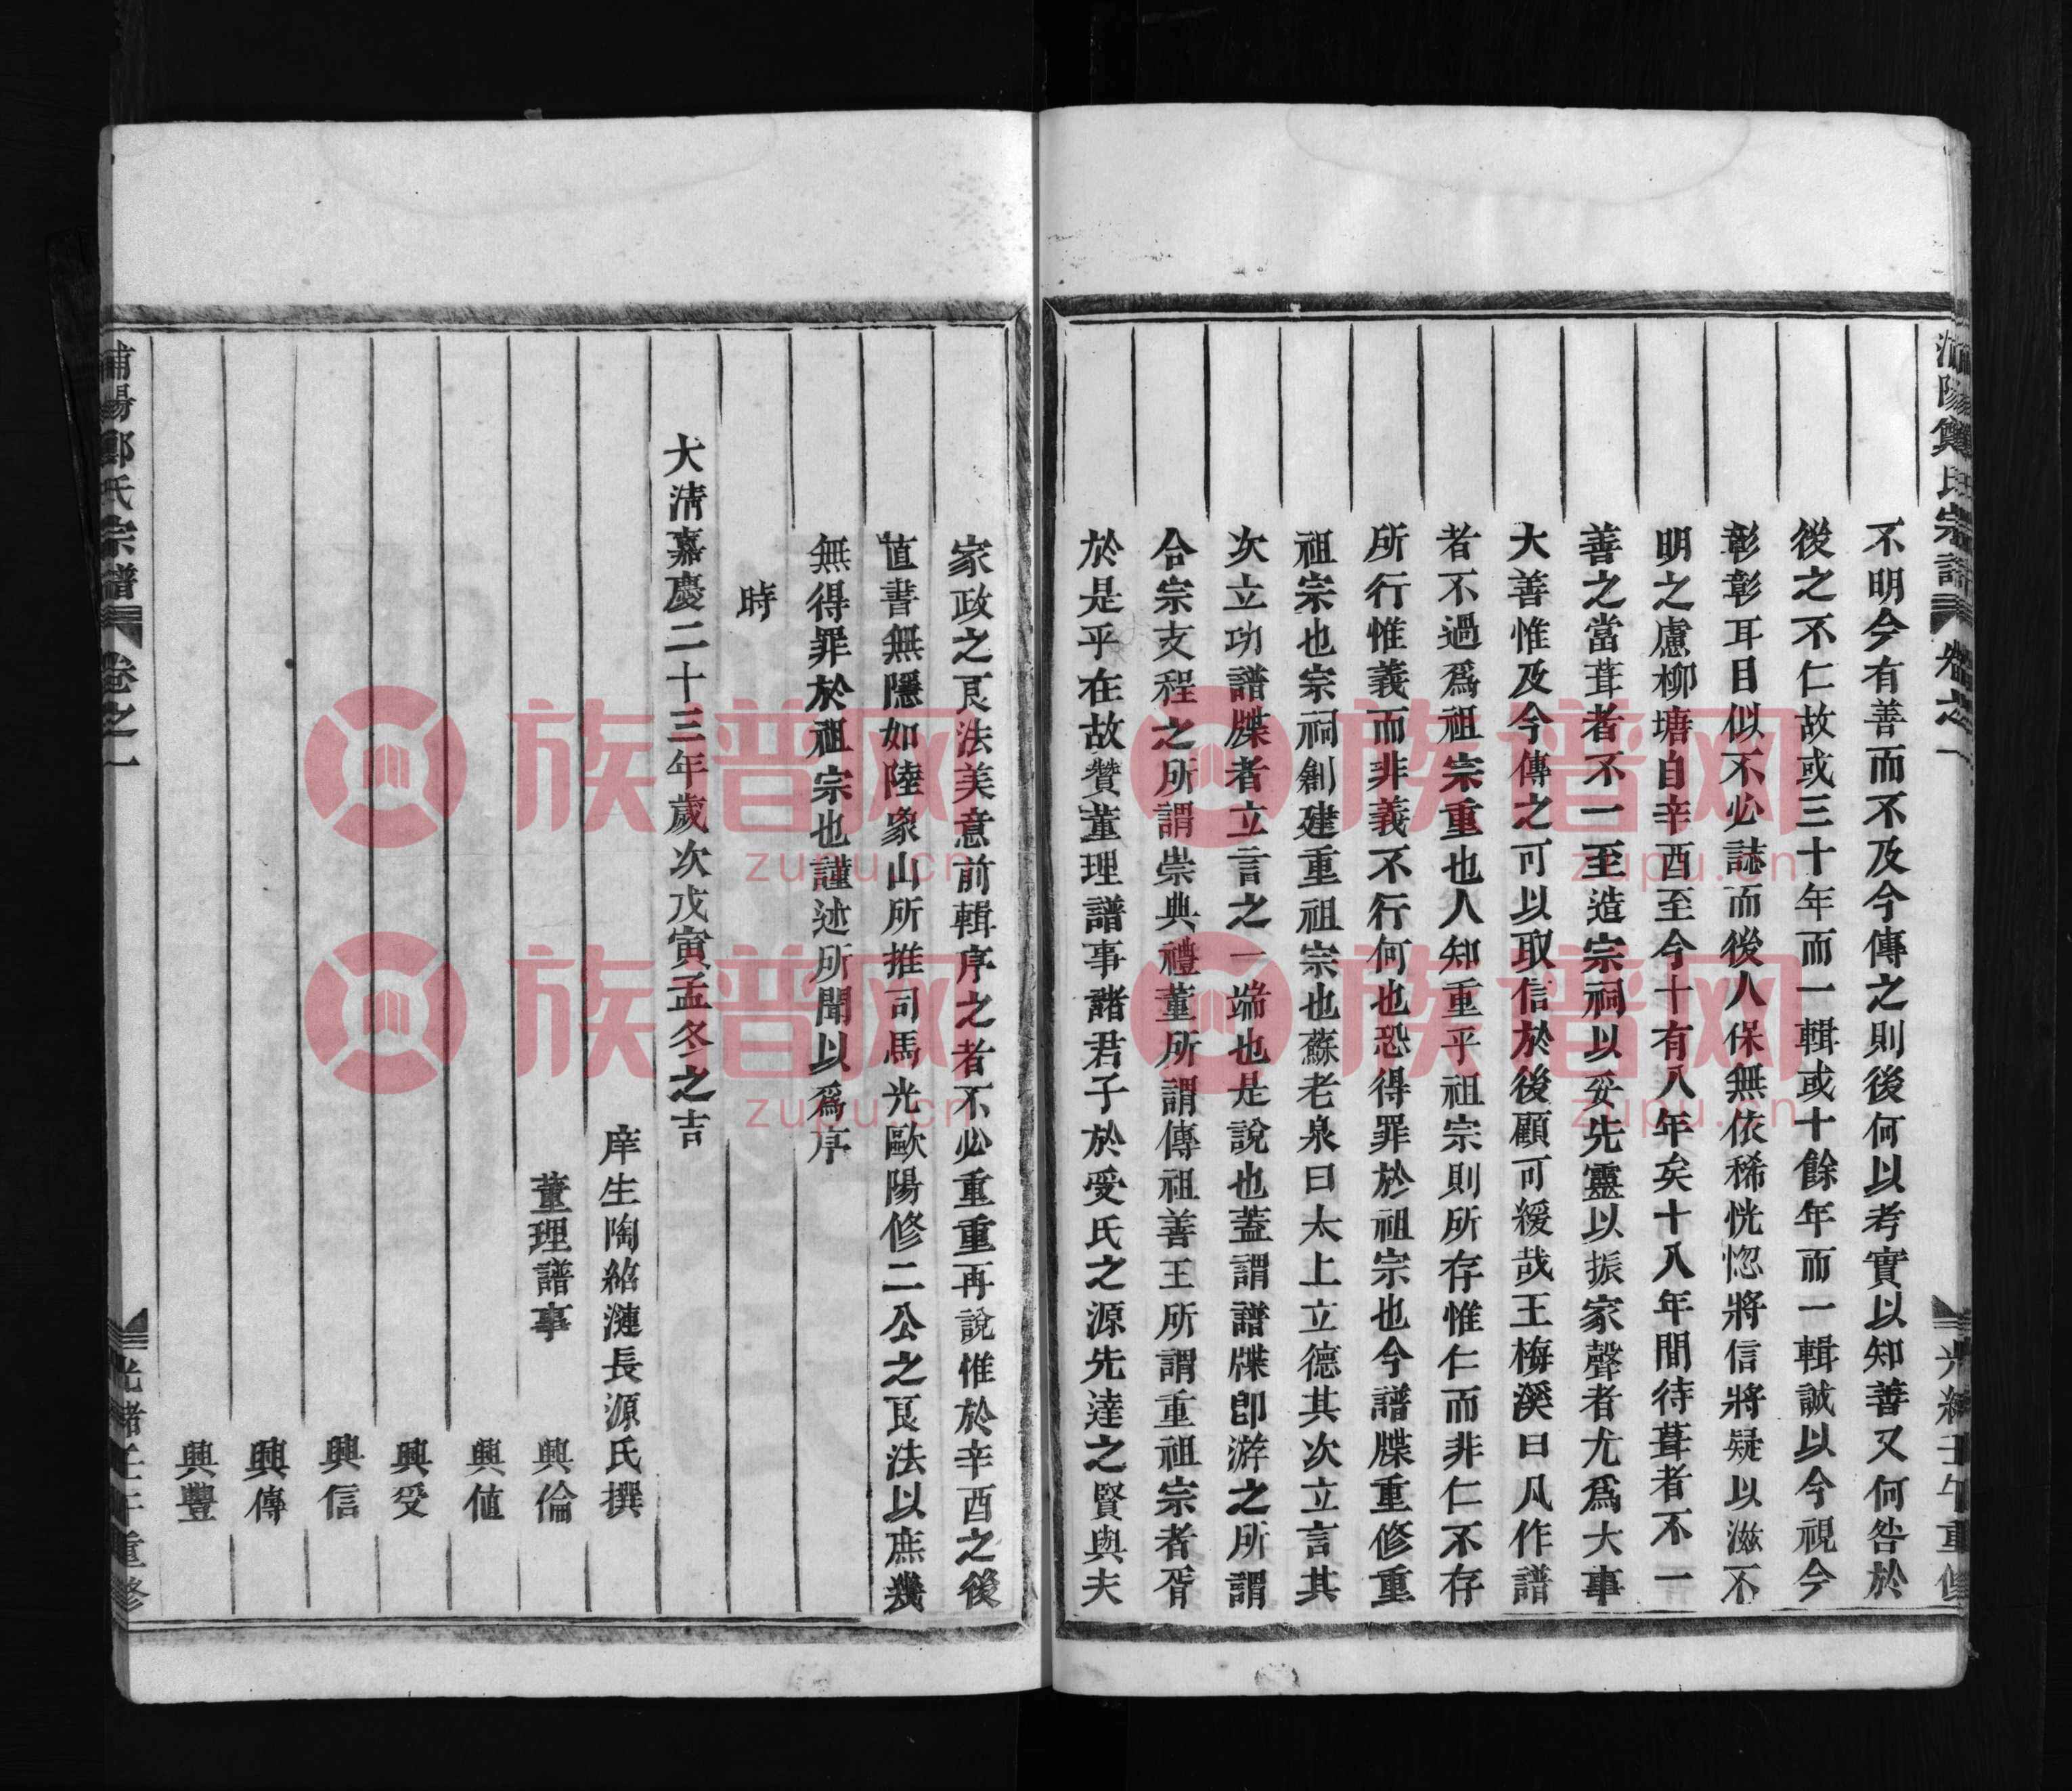 不明今有善而不及今傳之則後何以考實以知善又何咎於
後之不仁故或三十年而一輯或十餘年而一輯誠以今視今
彰彰耳目似不必誌而後人保無依稀恍惚將信將疑以滋不
明之慮柳塘自辛酉至今十有八年矣十八年間待葺者不一
善之當葺者不一至造宗祠以妥先靈以振家聲者尤爲大事
大善惟及今傳之可以取信於後顧可緩哉王梅溪曰凡作譜
者不過爲祖宗重也人知重乎祖宗則所存惟仁而非仁不存
所行惟義而非義不行何也恐得罪於祖宗也今譜牒重修重
祖宗也宗祠創建重祖宗也蘇老泉曰太上立德其次立言其
次立功譜牒者立言之一端也是說也蓋謂譜牒卽游之所謂
合宗支程之所謂崇典禮董所謂傳祖善王所謂重祖宗者胥
於是乎在故贊董理譜事諸君子於受氏之源先達之賢與夫
家政之良法美意前輯序之者不必重重再說惟於辛酉之後
直書無隱如陸象山所推司馬光歐陽修二公之良法以庶幾
無得罪於祖宗也謹述所聞以爲序
時
大清嘉慶二十三年歲次戊寅孟冬之吉
庠生陶紹漣長源氏撰
董理譜事
興倫
興值
興受
興信
興傳
興豐
浦陽鄭氏宗譜
卷之一
光緒壬午重修
族普网
zupu.cn
族普网
zupu.cn
族普网
zupu.cn
族普网
zupu.cn